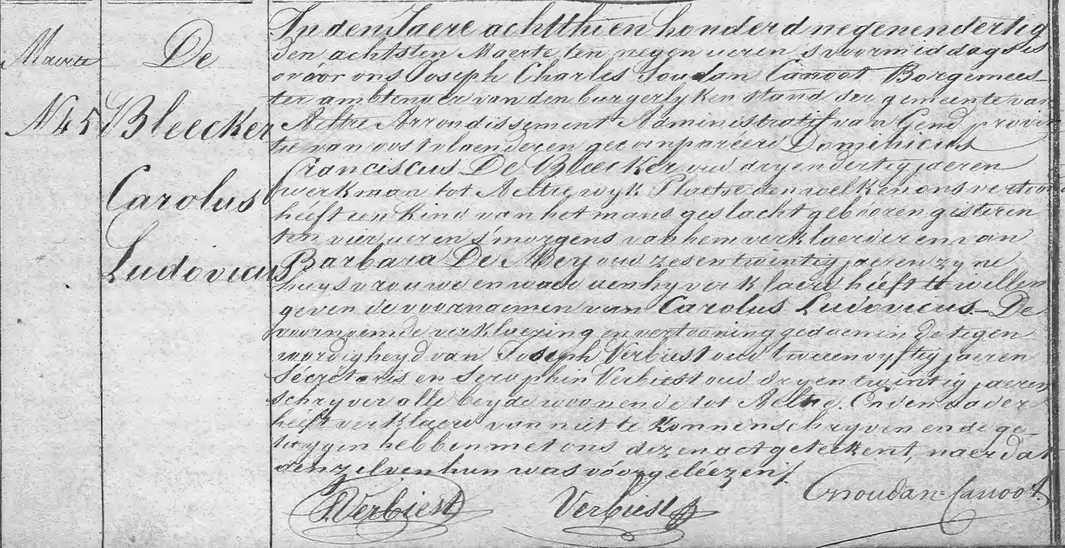 Maerte
N 45
De
Bleecker
Carolus
Ludovicus
In den Jaere achtthien honderd negenendertig
den achtsten Maerte ten negen ueren s'voormiddags is
voor ons Joseph Charles Soudan Canoot Borgemees
ter ambtenaer van den burgerlyken stand der gemeente van
Aeltre Arrondissement Administratif van Gend provin
tie van oostvlaenderen gecompareerd Dominicus
Franciscus De Bleecker oud dryendertig jaeren
werkman tot Aeltre wyk Plaetse den welken ons vertoond
heeft een kind van het mans geslacht geboren gisteren
ten vier ueren s'morgens van hem verklaerder en van
Barbara De Mey oud zesentwintig jaeren zyne
huysvrouwe en waer aen hy verklaerd heeft te willen
geven de voornaemen van Carolus Ludovicus – De
voornoemde verklaering en vertooning gedaen in de tegen
wordigheyd van Joseph Verbiest oud tweeenvyftig jaeren
Sécretaris en Seraphin Verbiest oud dryentwintig jaeren
schryver alle beyde woonende tot Aeltre. En den vader
heeft verklaerd van niet te konnen schryven en de ge-
tuygen hebben met ons dezen act geteekent, naer dat
den zelven hun was voorgeleezen /.
J. Verbiest Verbiest S Csoudan-Canoot